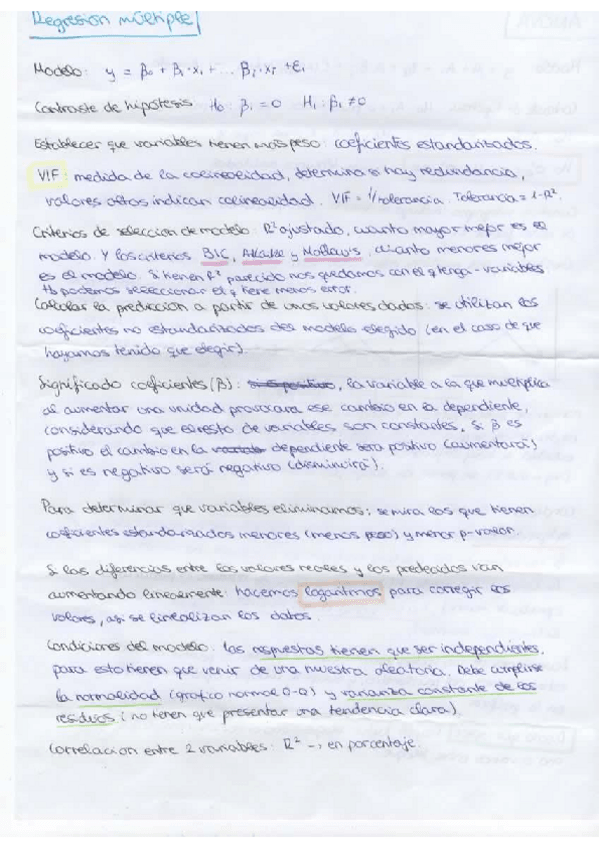 Regresión múltiple
Modelo: y = β₀ + β₁·x₁ + ... βᵢ·xᵢ + εᵢ
Contraste de hipotesis H₀: β₁ = 0 H₁: β₁ ≠ 0
Establecer que variables tienen más peso: coeficientes estandarizados.
VIF: medida de la colinealidad, determina si hay redundancia,
valores altos indican colinealidad. VIF = 1/tolerancia. Tolerancia = 1-R².
Criterios de selección de modelo: R² ajustado, cuanto mayor mejor es el
modelo. Y los criterios BIC, Akaike y Mallows, cuanto menores mejor
es el modelo. Si tienen R² parecido nos quedamos con el q tenga - variables
tb podemos seleccionar el q tiene menos error.
Calcular la predicción a partir de unos valores dados: se utilizan los
coeficientes no estandarizados del modelo elegido (en el caso de que
hayamos tenido que elegir).
Significado coeficientes (β): , la variable a la que multiplica
al aumentar una unidad provocara ese cambio en la dependiente,
considerando que el resto de variables son constantes, si β es
positivo el cambio en la dependiente sera positivo (aumentará)
y si es negativo será negativo (disminuirá).
Para determinar que variables eliminamos: se mira las que tienen
coeficientes estandarizados menores (menos peso) y menor p-valor.
Si las diferencias entre los valores reales y los predecidos van
aumentando linealmente: hacemos logaritmos para corregir los
valores, asi se linealizan los datos.
Condiciones del modelo: las respuestas tienen que ser independientes,
para esto tienen que venir de una muestra aleatoria. Debe cumplirse
la normalidad (grafico normal Q-Q) y varianza constante de los
residuos (no tienen que presentar una tendencia clara).
Correlación entre 2 variables: R² → en porcentaje.